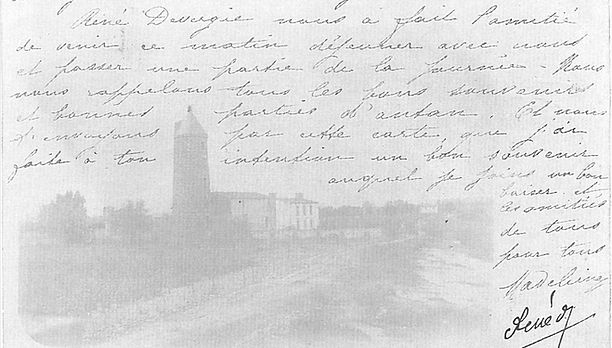 René Devergie nous a fait l'amitié
de venir ce matin déjeuner avec nous
et passer une partie de la journée - Nous
nous rappelons tous les bons souvenirs
et bonnes parties d'antan. Et nous
t'envoyons par cette carte, que j'ai
faite à ton intention un bon souvenir
auquel je joins un bon
baiser et
les amitiés
de tous
pour tous
Madeleine
René D